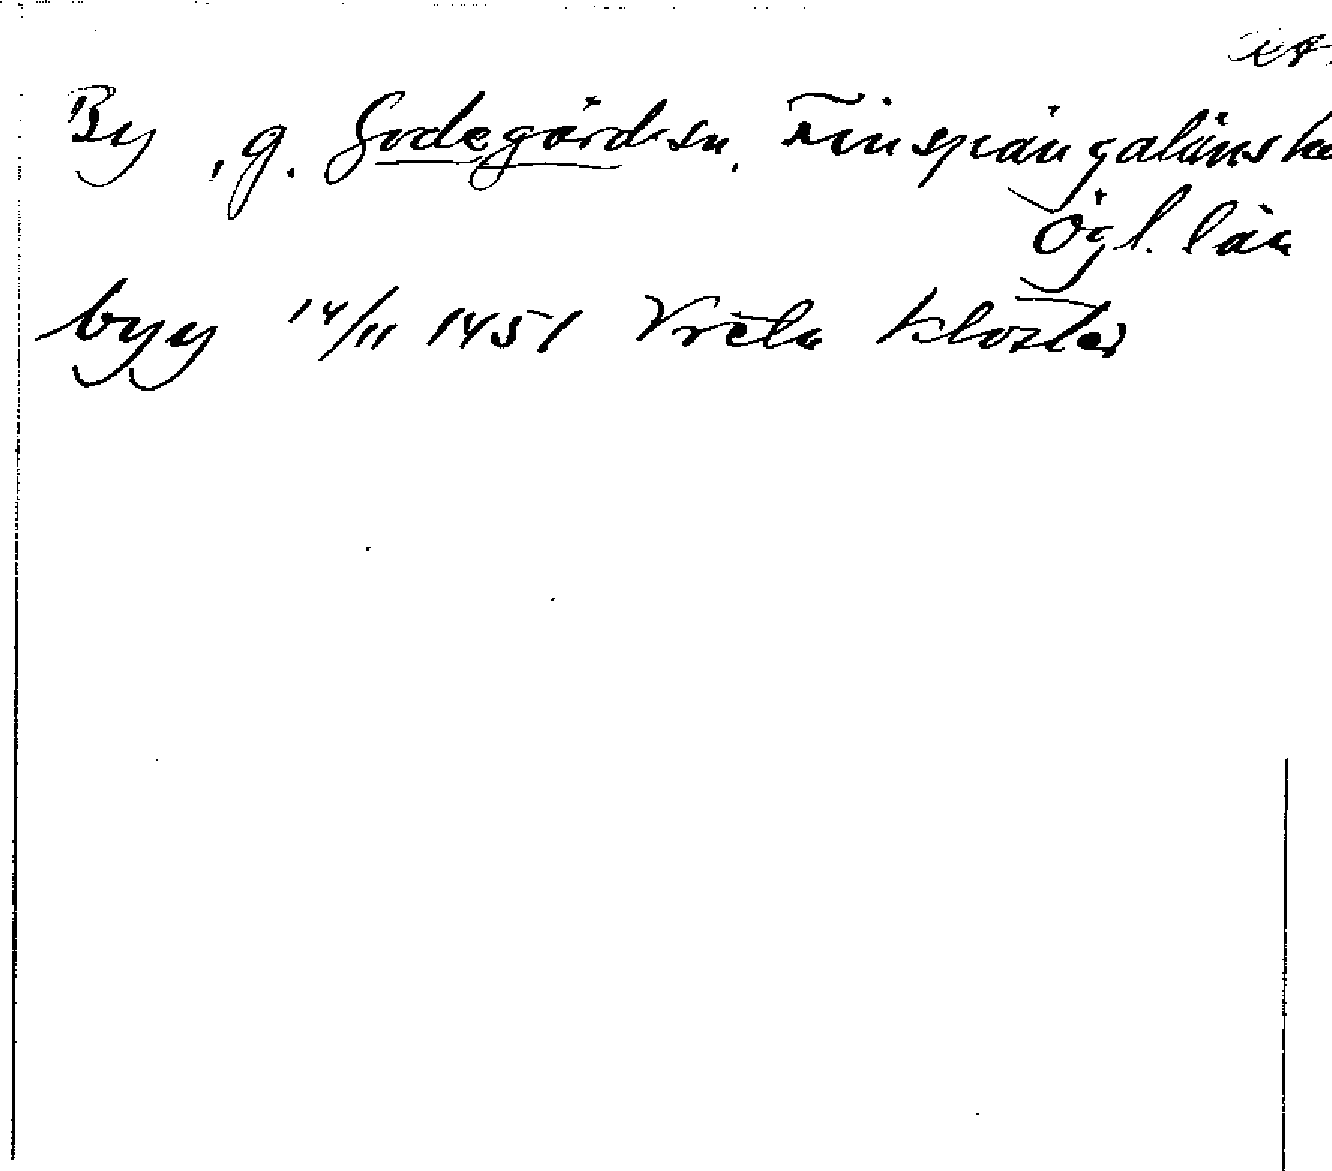 By , g. Godegårds sn, Finspångaläns
Ögl. län
byy 14/11 1451 Vreta kloster